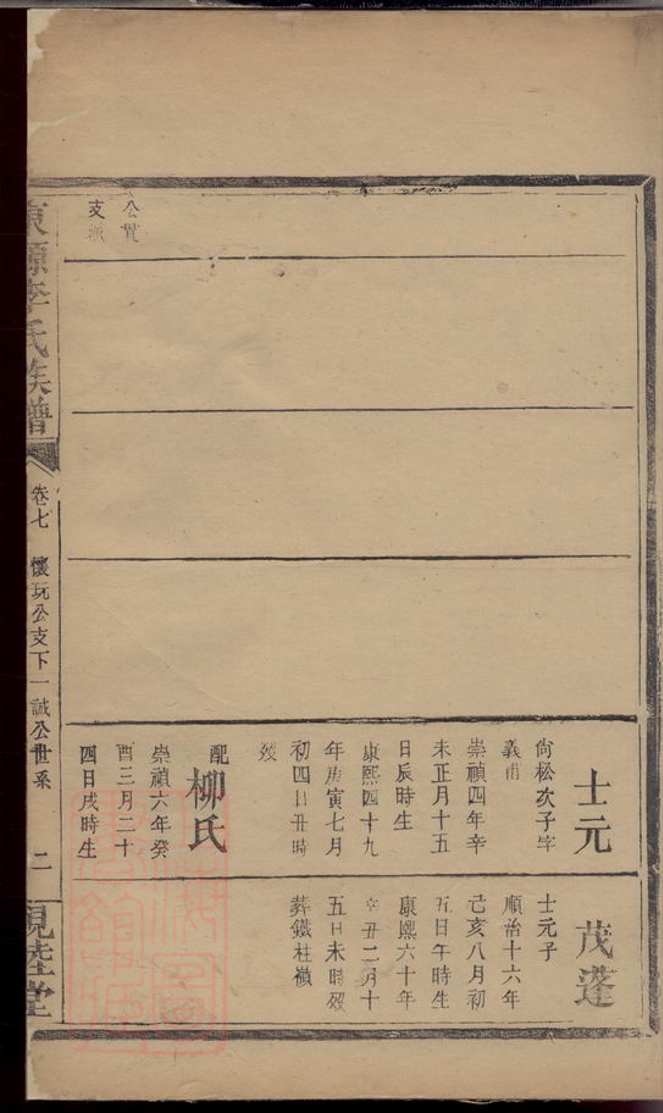 士元
尙松次子字
義甫
崇禎四年辛
未正月十五
日辰時生
康熙四十九
年庚寅七月
初四日丑時
歿
配
柳氏
崇禎六年癸
酉三月二十
四日戌時生
茂蓬
士元子
順治十六年
己亥八月初
五日午時生
康熙六十年
辛丑二月十
五日未時歿
葬鐵柱嶺
公覽
支派
東源李氏族譜
卷七
懷玩公支下一誠公世系
二
見陸堂